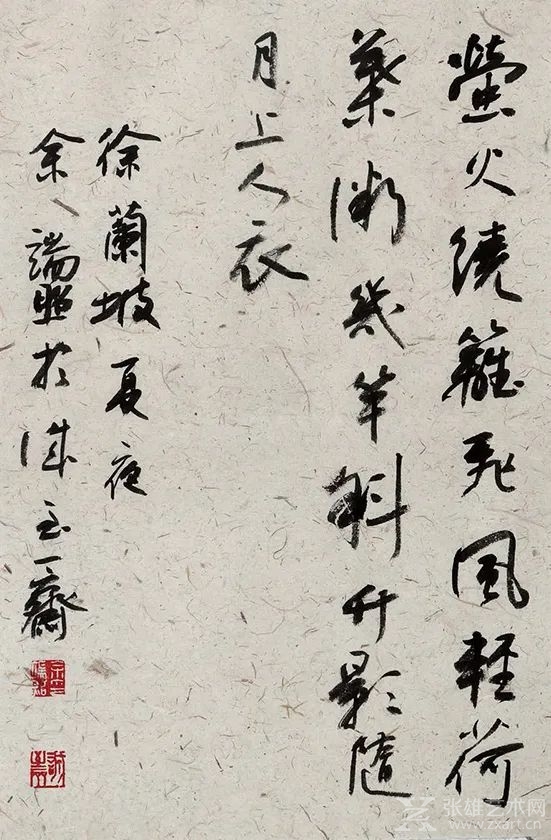 螢火繞籬飛風輕荷
葉微幾竿斜竹影隨
月上人衣
徐蘭坡夏夜
余端照於誠一齋
张雄艺术网
www.zxart.cn